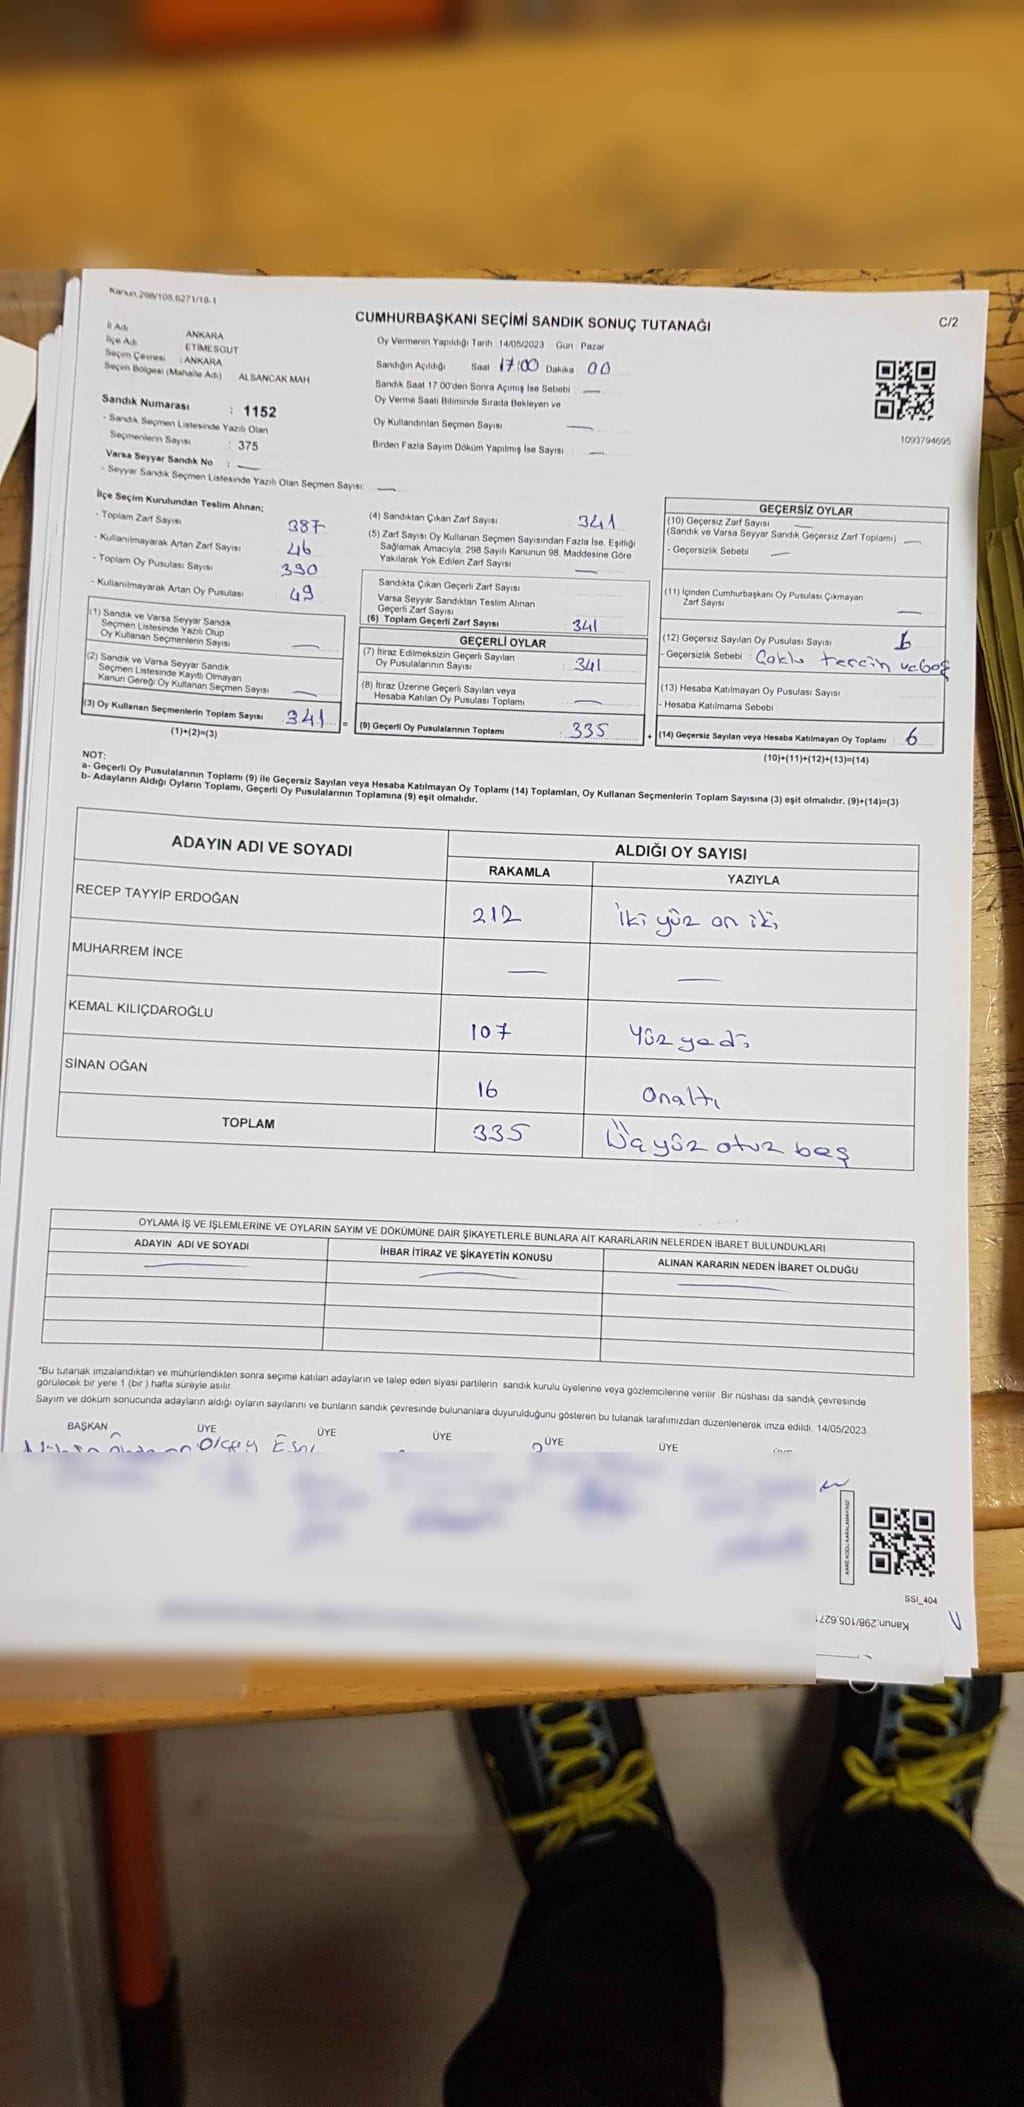 Kanun.298/108,6271/18-1
CUMHURBAŞKANI SEÇİMİ SANDIK SONUÇ TUTANAĞI
C/2
İl Adı ANKARA
İlçe Adı ETİMESGUT
Seçim Çevresi : ANKARA
Seçim Bölgesi (Mahalle Adı) ALSANCAK MAH
Oy Vermenin Yapıldığı Tarih : 14/05/2023 Gün : Pazar
Sandığın Açıldığı Saat 17:00 Dakika 00
Sandık Saat 17.00'den Sonra Açılmış İse Sebebi : —
Oy Verme Saati Bitiminde Sırada Bekleyen ve
Oy Kullandırılan Seçmen Sayısı —
Birden Fazla Sayım Döküm Yapılmış İse Sayısı : —
1093794695
Sandık Numarası : 1152
- Sandık Seçmen Listesinde Yazılı Olan
Seçmenlerin Sayısı : 375
Varsa Seyyar Sandık No : —
- Seyyar Sandık Seçmen Listesinde Yazılı Olan Seçmen Sayısı —
İlçe Seçim Kurulundan Teslim Alınan;
- Toplam Zarf Sayısı 387
- Kullanılmayarak Artan Zarf Sayısı 46
- Toplam Oy Pusulası Sayısı 390
- Kullanılmayarak Artan Oy Pusulası 49
(1) Sandık ve Varsa Seyyar Sandık
Seçmen Listesinde Yazılı Olup
Oy Kullanan Seçmenlerin Sayısı —
(2) Sandık ve Varsa Seyyar Sandık
Seçmen Listesinde Kayıtlı Olmayan
Kanun Gereği Oy Kullanan Seçmen Sayısı —
(3) Oy Kullanan Seçmenlerin Toplam Sayısı 341
(1)+(2)=(3)
(4) Sandıktan Çıkan Zarf Sayısı 341
(5) Zarf Sayısı Oy Kullanan Seçmen Sayısından Fazla İse, Eşitliği
Sağlamak Amacıyla, 298 Sayılı Kanunun 98. Maddesine Göre
Yakılarak Yok Edilen Zarf Sayısı —
Sandıkta Çıkan Geçerli Zarf Sayısı
Varsa Seyyar Sandıktan Teslim Alınan
Geçerli Zarf Sayısı
(6) Toplam Geçerli Zarf Sayısı : 341
GEÇERLİ OYLAR
(7) İtiraz Edilmeksizin Geçerli Sayılan
Oy Pusulalarının Sayısı : 341
(8) İtiraz Üzerine Geçerli Sayılan veya
Hesaba Katılan Oy Pusulası Toplamı : —
= (9) Geçerli Oy Pusulalarının Toplamı : 335
GEÇERSİZ OYLAR
(10) Geçersiz Zarf Sayısı —
(Sandık ve Varsa Seyyar Sandık Geçersiz Zarf Toplamı) —
- Geçersizlik Sebebi —
(11) İçinden Cumhurbaşkanı Oy Pusulası Çıkmayan
Zarf Sayısı —
(12) Geçersiz Sayılan Oy Pusulası Sayısı 6
- Geçersizlik Sebebi Çoklu tercih ve boş
(13) Hesaba Katılmayan Oy Pusulası Sayısı
- Hesaba Katılmama Sebebi
+ (14) Geçersiz Sayılan veya Hesaba Katılmayan Oy Toplamı : 6
(10)+(11)+(12)+(13)=(14)
NOT:
a- Geçerli Oy Pusulalarının Toplamı (9) ile Geçersiz Sayılan veya Hesaba Katılmayan Oy Toplamı (14) Toplamları, Oy Kullanan Seçmenlerin Toplam Sayısına (3) eşit olmalıdır. (9)+(14)=(3)
b- Adayların Aldığı Oyların Toplamı, Geçerli Oy Pusulalarının Toplamına (9) eşit olmalıdır.
ADAYIN ADI VE SOYADI ALDIĞI OY SAYISI
RAKAMLA YAZIYLA
RECEP TAYYİP ERDOĞAN 212 İki yüz on iki
MUHARREM İNCE — —
KEMAL KILIÇDAROĞLU 107 Yüz yedi
SİNAN OĞAN 16 Onaltı
TOPLAM 335 Üç yüz otuz beş
OYLAMA İŞ VE İŞLEMLERİNE VE OYLARIN SAYIM VE DÖKÜMÜNE DAİR ŞİKAYETLERLE BUNLARA AİT KARARLARIN NELERDEN İBARET BULUNDUKLARI
ADAYIN ADI VE SOYADI İHBAR İTİRAZ VE ŞİKAYETİN KONUSU ALINAN KARARIN NEDEN İBARET OLDUĞU
— — —
*Bu tutanak imzalandıktan ve mühürlendikten sonra seçime katılan adayların ve talep eden siyasi partilerin sandık kurulu üyelerine veya gözlemcilerine verilir. Bir nüshası da sandık çevresinde
görülecek bir yere 1 (bir ) hafta süreyle asılır
Sayım ve döküm sonucunda adayların aldığı oyların sayılarını ve bunların sandık çevresinde bulunanlara duyurulduğunu gösteren bu tutanak tarafımızdan düzenlenerek imza edildi. 14/05/2023
BAŞKAN ÜYE ÜYE ÜYE ÜYE ÜYE
Olçay
"KARE KODU KARALAMAYINIZ"
SSİ_404
Kanun.298/105,627